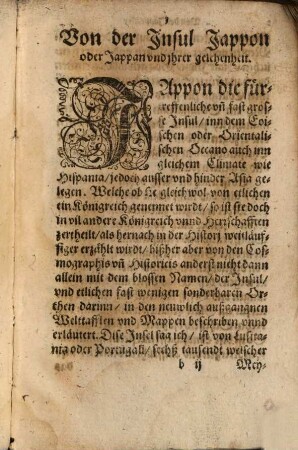 Von der Insul Jappon
oder Jappan vnd jhrer gelegenheit.
JAppon die für-
treffenliche vñ fast gros-
se Insul / inn dem Eoi-
schen oder Orientali-
schen Oceano auch inn
gleichem Climate wie
Hispania / jedoch ausser vnd hinder Asia ge-
legen. Welche ob sie gleich wol von etlichen
ein Königreich genennet wirdt / so ist sie doch
in vil andere Königreich vnnd Herrschafften
zertheilt / als hernach in der Histori weitläuf-
figer erzehlt wirdt / bißher aber von den Cos-
mographis vñ Historicis anderst nicht dann
allein mit dem blossen Namen / der Insul /
vnd etlichen fast wenigen sonderbaren Or-
then darinn / in den neuwlich außgangnen
Welttafflen vnd Mappen beschriben vnnd
erläutert. Dise Insel sag ich / ist von Lusita-
nia oder Portugall / sechß tausendt welscher
b ij Mey-